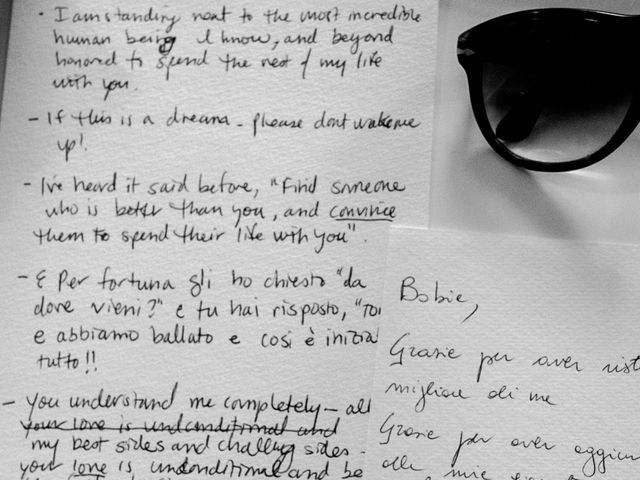 · I am standing next to the most incredible
human being I know, and beyond
honored to spend the rest of my life
with you.
- If this is a dream - please dont wake me
up!
- I've heard it said before, "Find someone
who is better than you, and convince
them to spend their life with you".
- E Per fortuna gli ho chiesto "da
dove vieni?" e tu hai risposto,
e abbiamo ballato e cosi è
tutto!!
- you understand me completely - all
your love is undconditional and
my best sides and challeng sides -
your love is unconditional and be
Bobie,
Grazie per aver
migliore di me
Grazie per aver
alle mie